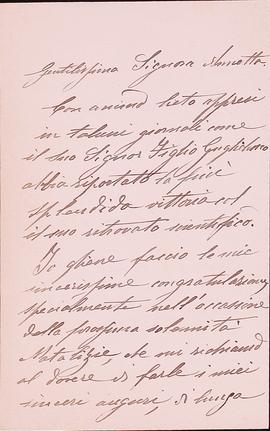 Gentilissima Signora Annetta.
Con animo lieto appresi
in taluni giornali come
il suo Signor Figlio Guglielmo
abbia riportato la più
splendida vittoria col
il suo ritrovato scientifico.
Io gliene faccio le mie
sincerissime congratulazioni,
specialmente nell'occasione
della prossima solennità
Natalizie, che mi richiamo
al dovere di farle i miei
sinceri auguri, di lunga